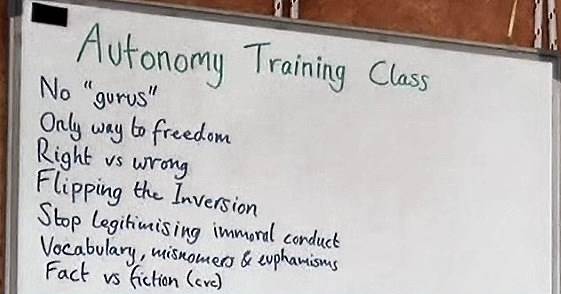 Autonomy Training Class
No "gurus"
Only way to freedom
Right vs wrong
Flipping the Inversion
Stop legitimising immoral conduct
Vocabulary, misnomers & euphamisms
Fact vs fiction (cvc)